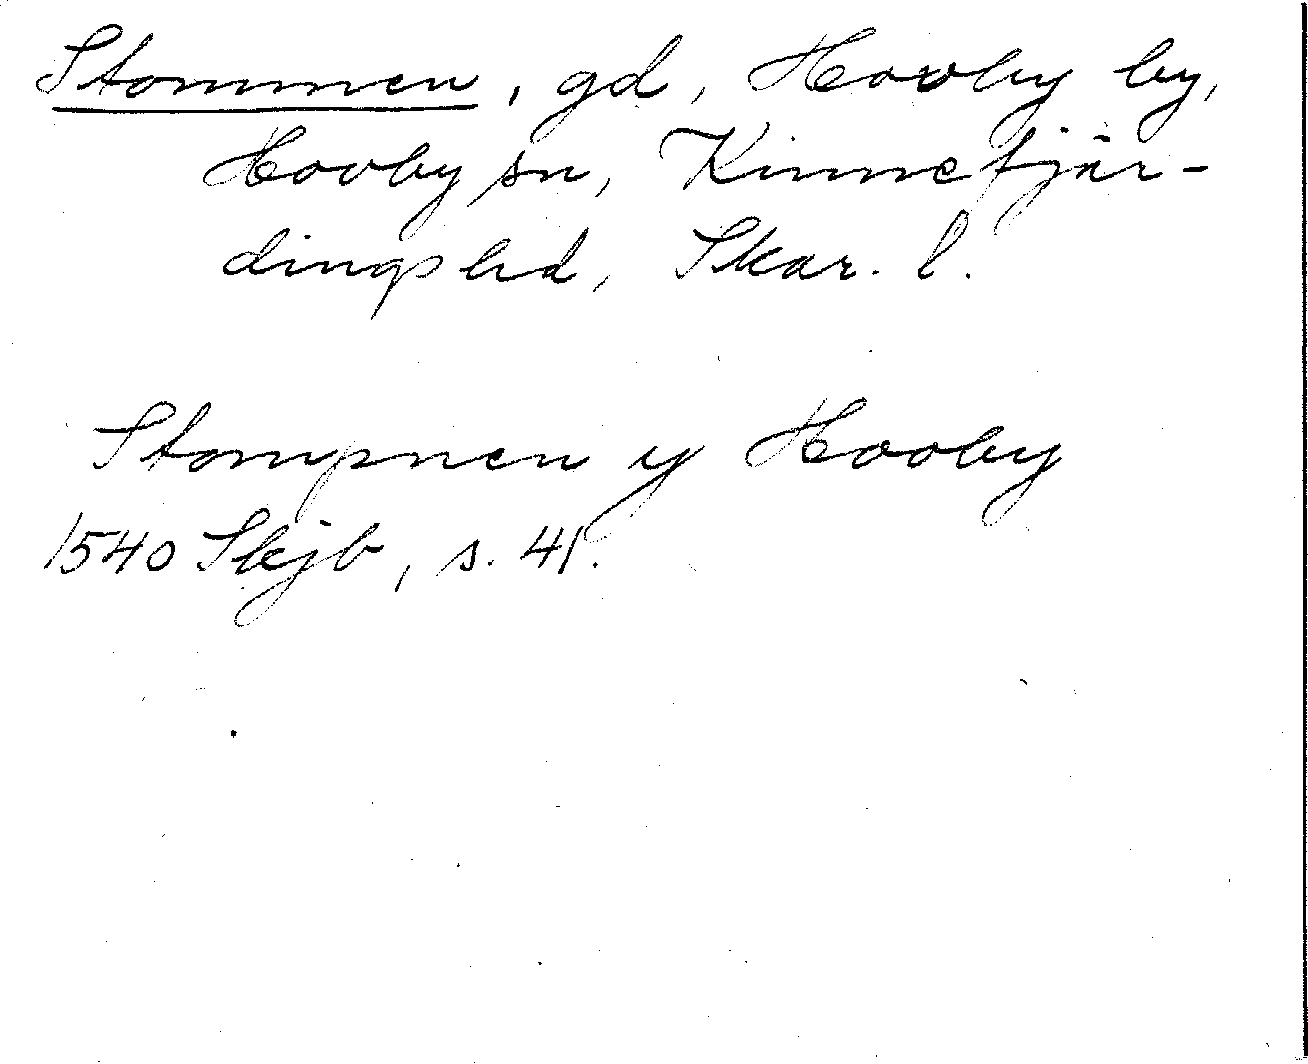 Stommen, gd, Hovby by,
Hovby sn, Kinnefjär-
dings hd, Skar. l.
Stompnen y Hovby
1540 Skjb, s. 41.